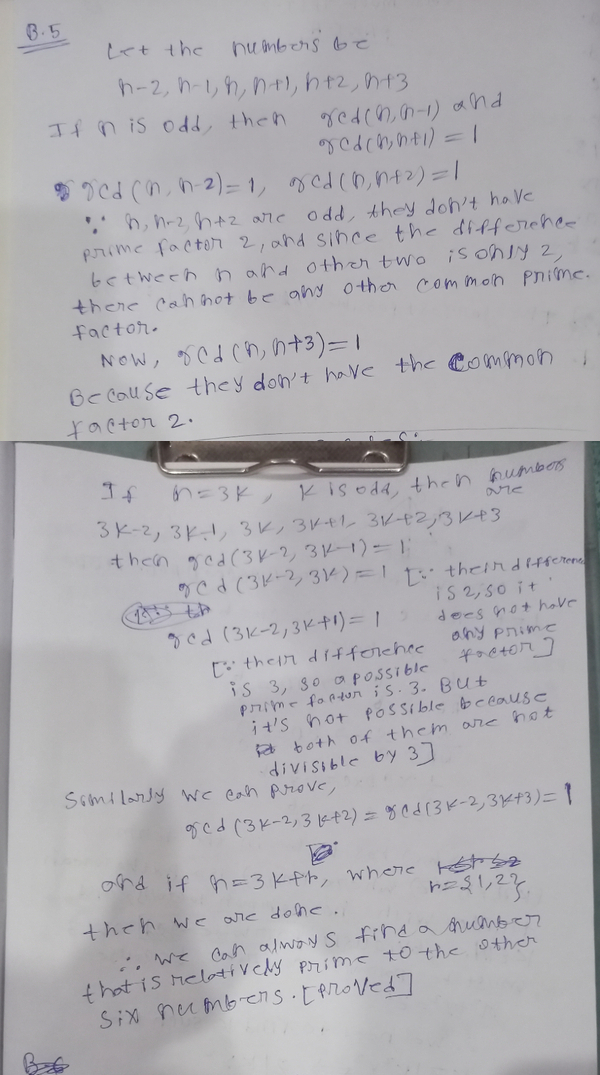 B.5
Let the numbers be
n-2, n-1, n, n+1, n+2, n+3
If n is odd, then gcd(n, n-1) and
gcd(n, n+1) = 1
gcd(n, n-2) = 1, gcd(n, n+2) = 1
∵ n, n-2, n+2 are odd, they don't have
prime factor 2, and since the difference
between n and other two is only 2,
there cannot be any other common prime.
factor.
Now, gcd(n, n+3) = 1
Because they don't have the common
factor 2.
If n = 3k, k is odd, then numbers
are
3k-2, 3k-1, 3k, 3k+1, 3k+2, 3k+3
then gcd(3k-2, 3k-1) = 1
gcd(3k-2, 3k) = 1 [∵ their difference
is 2, so it
does not have
any prime
factor]
gcd(3k-2, 3k+1) = 1
[∵ their difference
is 3, so a possible
prime factor is 3. But
it's not possible because
both of them are not
divisible by 3]
Similarly we can prove,
gcd(3k-2, 3k+2) = gcd(3k-2, 3k+3) = 1
and if n = 3k+r, where
r = {1, 2}.
then we are done.
∴ we can always find a number
that is relatively prime to the other
six numbers. [Proved]